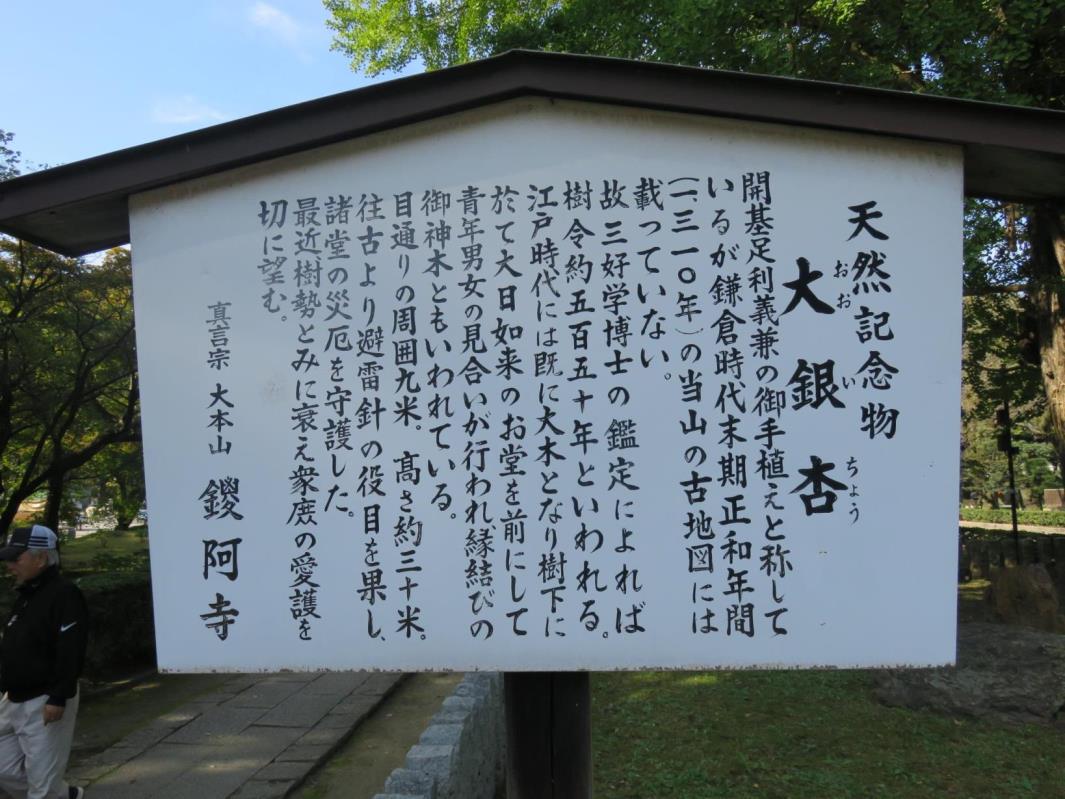 天然記念物
大銀杏
おおいちょう
開基足利義兼の御手植えと称して
いるが鎌倉時代末期正和年間
(一、三一〇年)の当山の古地図には
載っていない。
故三好学博士の鑑定によれば
樹令約五百五十年といわれる。
江戸時代には既に大木となり樹下に
於て大日如来のお堂を前にして
青年男女の見合いが行われ縁結びの
御神木ともいわれている。
目通りの周囲九米。高さ約三十米。
往古より避雷針の役目を果し、
諸堂の災厄を守護した。
最近、樹勢とみに衰え衆庶の愛護を
切に望む。
真言宗 大本山 鑁阿寺